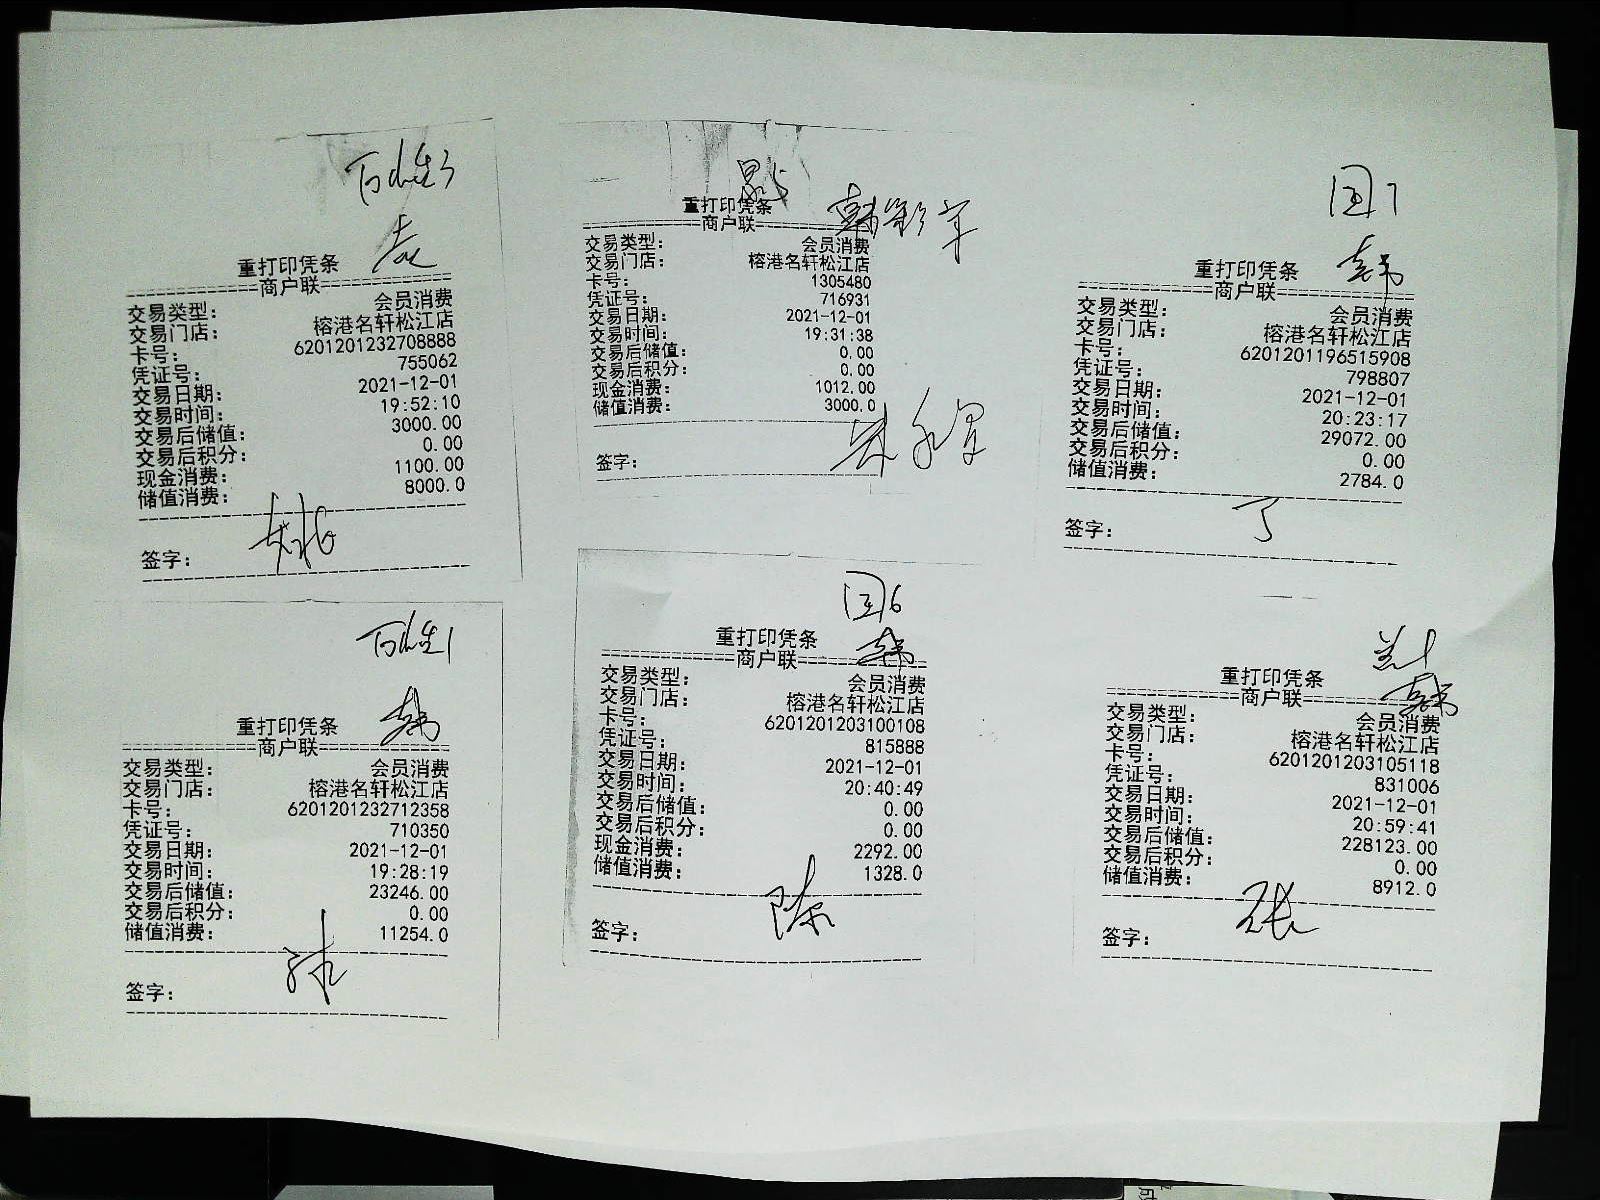 重打印凭条
商户联
交易类型： 会员消费
交易门店： 榕港名轩松江店
卡号： 6201201232708888
凭证号： 755062
交易日期： 2021-12-01
交易时间： 19:52:10
交易后储值： 3000.00
交易后积分： 0.00
现金消费： 1100.00
储值消费： 8000.0
签字：
重打印凭条
商户联
交易类型： 会员消费
交易门店： 榕港名轩松江店
卡号： 1305480
凭证号： 716931
交易日期： 2021-12-01
交易时间： 19:31:38
交易后储值： 0.00
交易后积分： 0.00
现金消费： 1012.00
储值消费： 3000.0
签字：
国7
韩
重打印凭条
商户联
交易类型： 会员消费
交易门店： 榕港名轩松江店
卡号： 6201201196515908
凭证号： 798807
交易日期： 2021-12-01
交易时间： 20:23:17
交易后储值： 29072.00
交易后积分： 0.00
储值消费： 2784.0
签字：
韩
重打印凭条
商户联
交易类型： 会员消费
交易门店： 榕港名轩松江店
卡号： 6201201232712358
凭证号： 710350
交易日期： 2021-12-01
交易时间： 19:28:19
交易后储值： 23246.00
交易后积分： 0.00
储值消费： 11254.0
签字：
国6
重打印凭条 韩
商户联
交易类型： 会员消费
交易门店： 榕港名轩松江店
卡号： 6201201203100108
凭证号： 815888
交易日期： 2021-12-01
交易时间： 20:40:49
交易后储值： 0.00
交易后积分： 0.00
现金消费： 2292.00
储值消费： 1328.0
签字： 陈
重打印凭条 韩
商户联
交易类型： 会员消费
交易门店： 榕港名轩松江店
卡号： 6201201203105118
凭证号： 831006
交易日期： 2021-12-01
交易时间： 20:59:41
交易后储值： 228123.00
交易后积分： 0.00
储值消费： 8912.0
签字： 张